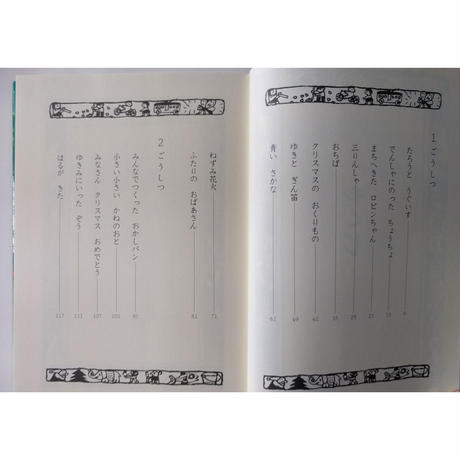 1ごうしつ
たろうと うぐいす
でんしゃにのった ちょうちょ
まちへきた ロビンちゃん
三りんしゃ
おちば 35
クリスマスの おくりもの 42
ゆきと ぎん笛 49
青い さかな 61
ねずみ花火 71
ふたりの おばあさん 81
2ごうしつ
みんなでつくった おかしパン
小さい小さい かねのおと 101
みなさん クリスマス おめでとう 107
ゆきみにいった ぞう 111
はるが きた 117